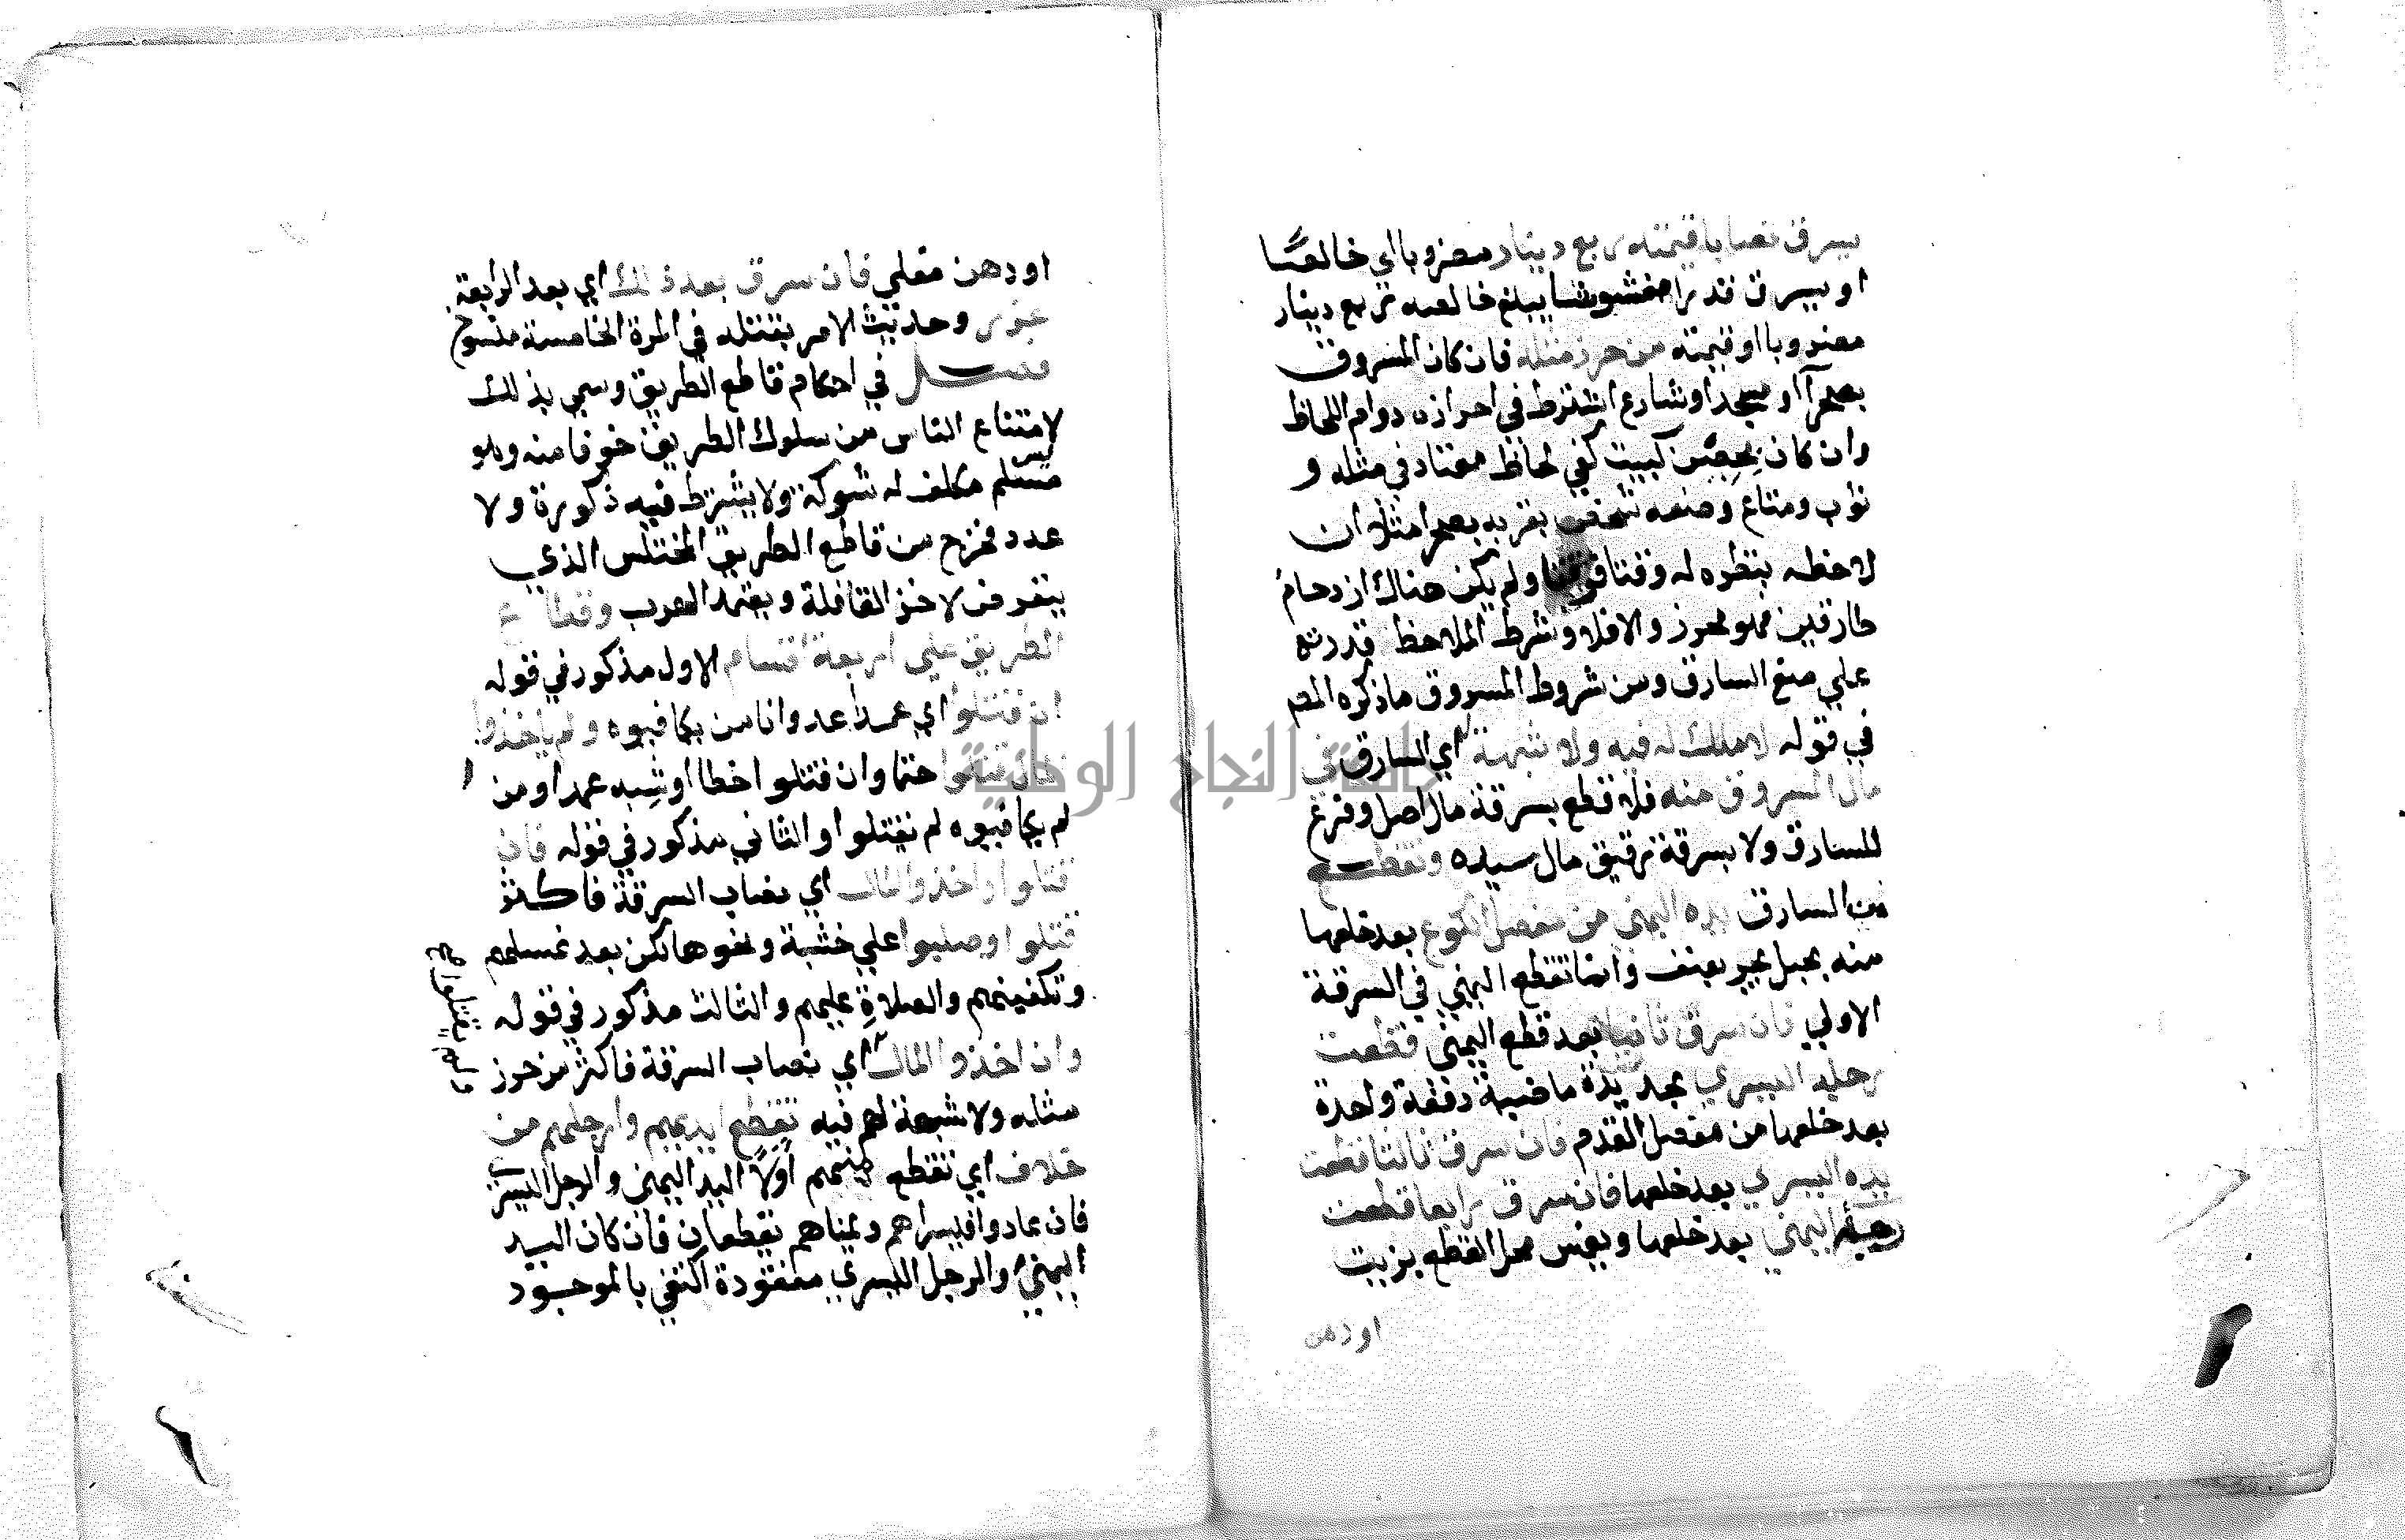 يسرق نصابا قيمته ربع دينار مضروبا اي خالصا
او يسرق قدرا مغشوشا يبلغ خالصه ربع دينار
مضروبا او قيمته من حرز مثله فان كان المسروق
بصحرا او مسجد او شارع اشترط في احرازه دوام اللحاظ
وان كان بحصن كبيت كفي لحاظ معتاد في مثله و
ثوب ومتاع وضعه شخص بقربه بصحرا مثلا ان
لاحظه بنظره له وقتا فوقتا ولم يكن هناك ازدحام
طارقين فهو محرز والا فلا وشرط الملاحظ قدرته
علي منع السارق ومن شروط المسروق ما ذكره المص
في قوله لا ملك له فيه ولا شبهة اي للسارق في
مال المسروق منه فلا قطع بسرقة مال اصل وفرع
للسارق ولا بسرقة رقيق مال سيده وتقطع
من السارق يده اليمني من مفصل الكوع بعد خلعها
منه بحبل يجر بعنف وانما تقطع اليمني في السرقة
الاولي فان سرق ثانيا بعد قطع اليمني قطعت
رجليه اليسري بحديدة ماضية دفعة واحدة
بعد خلعها من مفصل القدم فان سرق ثالثا قطعت
يده اليسري بعد خلعها فان سرق رابعا قطعت
رجله اليمني بعد خلعها ويغمس محل القطع بزيت
او دهن
او دهن مغلي فان سرق بعد ذلك اي بعد الرابعة
عزر وحديث الامر بقتله في المرة الخامسة منسوخ
فصل في احكام قاطع الطريق وسمي بذلك
لامتناع الناس من سلوك الطريق خوفا منه وهو
مسلم مكلف له شوكة ولا يشترط فيه ذكورة ولا
عدد فخرج من قاطع الطريق المختلس الذي
يتعرض لاخذ القافلة ويعتمد الهرب وقطاع
الطريق علي اربعة اقسام الاول مذكور في قوله
ان قتلوا اي عمدا عدوانا من يكافيوه ولم ياخذوا
المال قتلوا حتما وان قتلوا خطا او شبه عمد او من
لم يكافيوه لم يقتلوا والثاني مذكور في قوله فان
قتلوا واخذوا المال اي نصاب السرقة فاكثر
قتلوا وصلبوا علي خشبة ونحوها لكن بعد غسلهم
وتكفينهم والصلاة عليهم والثالث مذكور في قوله
وان اخذوا المال اي نصاب السرقة فاكثر من حرز
مثله ولا شبهة لهم فيه تقطع ايديهم وارجلهم من
خلاف اي تقطع منهم اولا اليد اليمني والرجل اليسري
فان عادوا فيسراهم ويمناهم يقطعان فان كان اليد
اليمني والرجل اليسري مفقودة اكتفي بالموجود
ولم يقتلوا صح
جامعة النجاح الوطنية